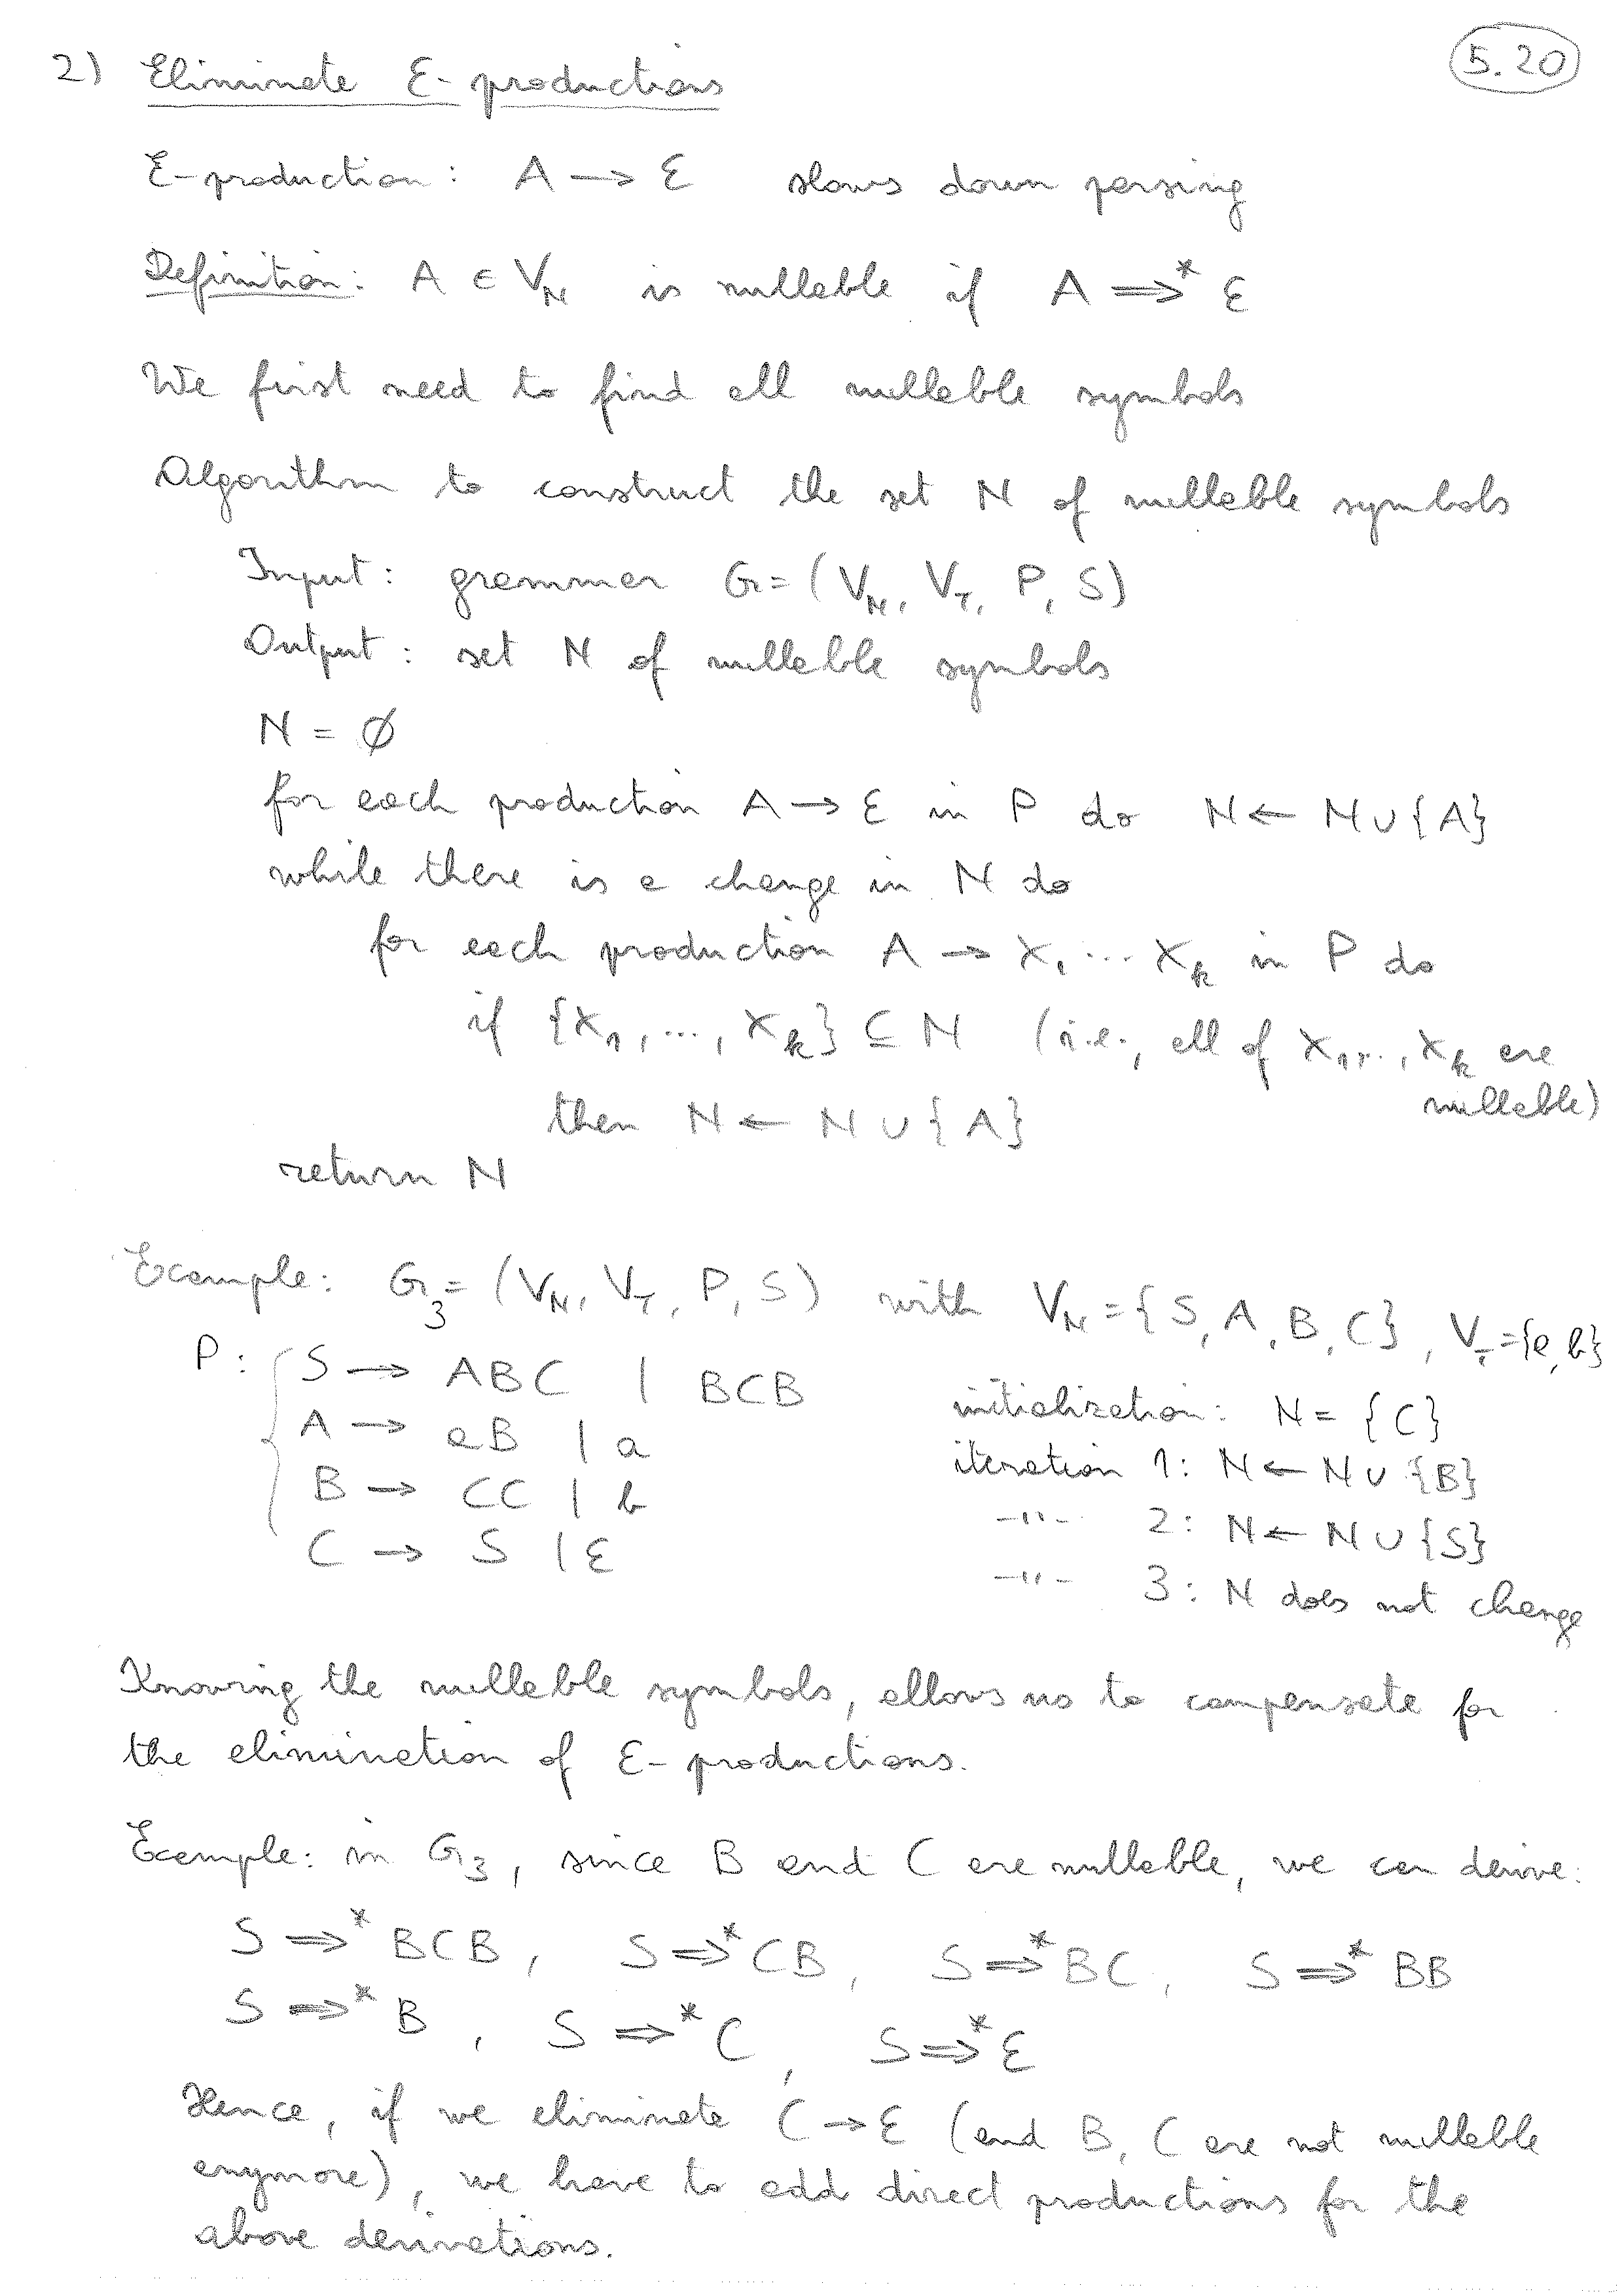 2) Eliminate ε-productions 5.20
ε-production: A → ε slows down parsing
Definition: A ∈ V_N is nullable if A ⇒* ε
We first need to find all nullable symbols
Algorithm to construct the set N of nullable symbols
Input: grammar G = (V_N, V_T, P, S)
Output: set N of nullable symbols
N = ∅
for each production A → ε in P do N ← N ∪ {A}
while there is a change in N do
for each production A → X_1 ... X_k in P do
if {X_1, ..., X_k} ⊆ N (i.e., all of X_1,..., X_k are
nullable)
then N ← N ∪ {A}
return N
Example: G_3 = (V_N, V_T, P, S) with V_N = {S, A, B, C}, V_T = {a, b}
P: { S → ABC | BCB
A → aB | a initialization: N = {C}
B → CC | b iteration 1: N ← N ∪ {B}
C → S | ε —"— 2: N ← N ∪ {S}
—"— 3: N does not change
Knowing the nullable symbols, allows us to compensate for
the elimination of ε-productions.
Example: in G_3, since B and C are nullable, we can derive:
S ⇒* BCB, S ⇒* CB, S ⇒* BC, S ⇒* BB
S ⇒* B, S ⇒* C, S ⇒* ε
Hence, if we eliminate C → ε (and B, C are not nullable
anymore), we have to add direct productions for the
above derivations.